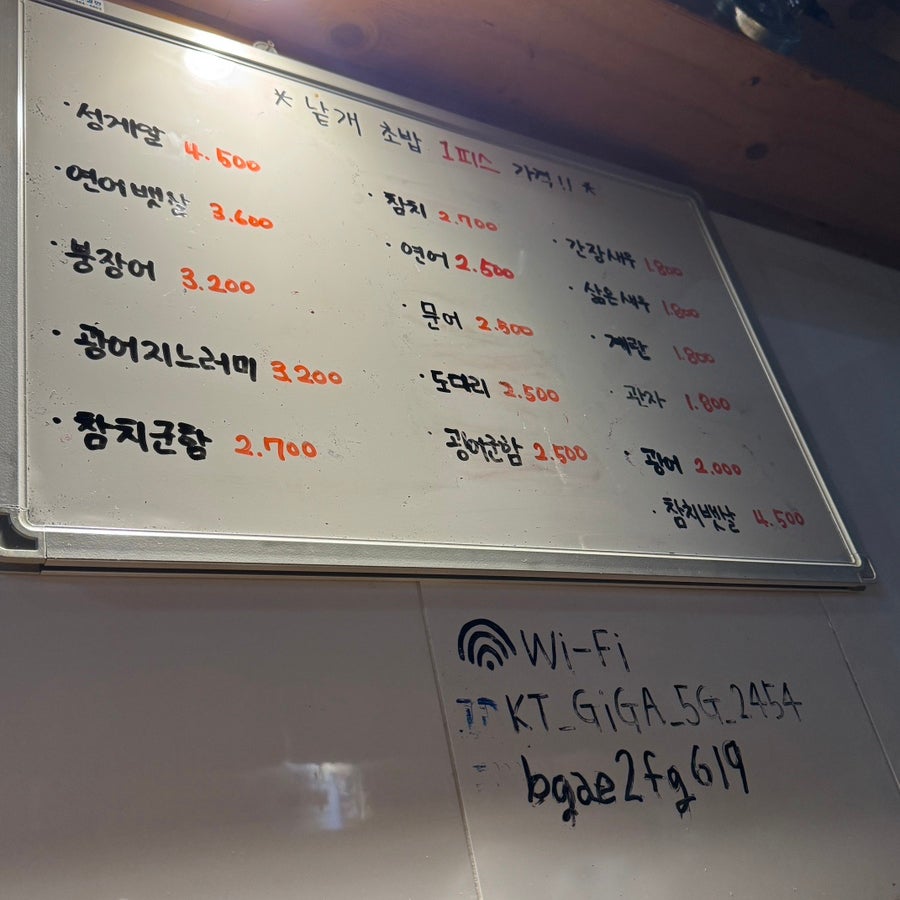 * 낱개 초밥 1피스 가격!! *
· 성게알 4.500
· 연어뱃살 3.600
· 붕장어 3.200
· 광어지느러미 3.200
· 참치군함 2.700
· 참치 2.700
· 연어 2.500
· 문어 2.500
· 도다리 2.500
· 광어군함 2.500
· 간장새우 1.800
· 삶은새우 1.800
· 계란 1.800
· 관자 1.800
· 광어 2.000
· 참치뱃살 4.500
Wi-Fi
KT_GiGA_5G_2454
bgae2fg619